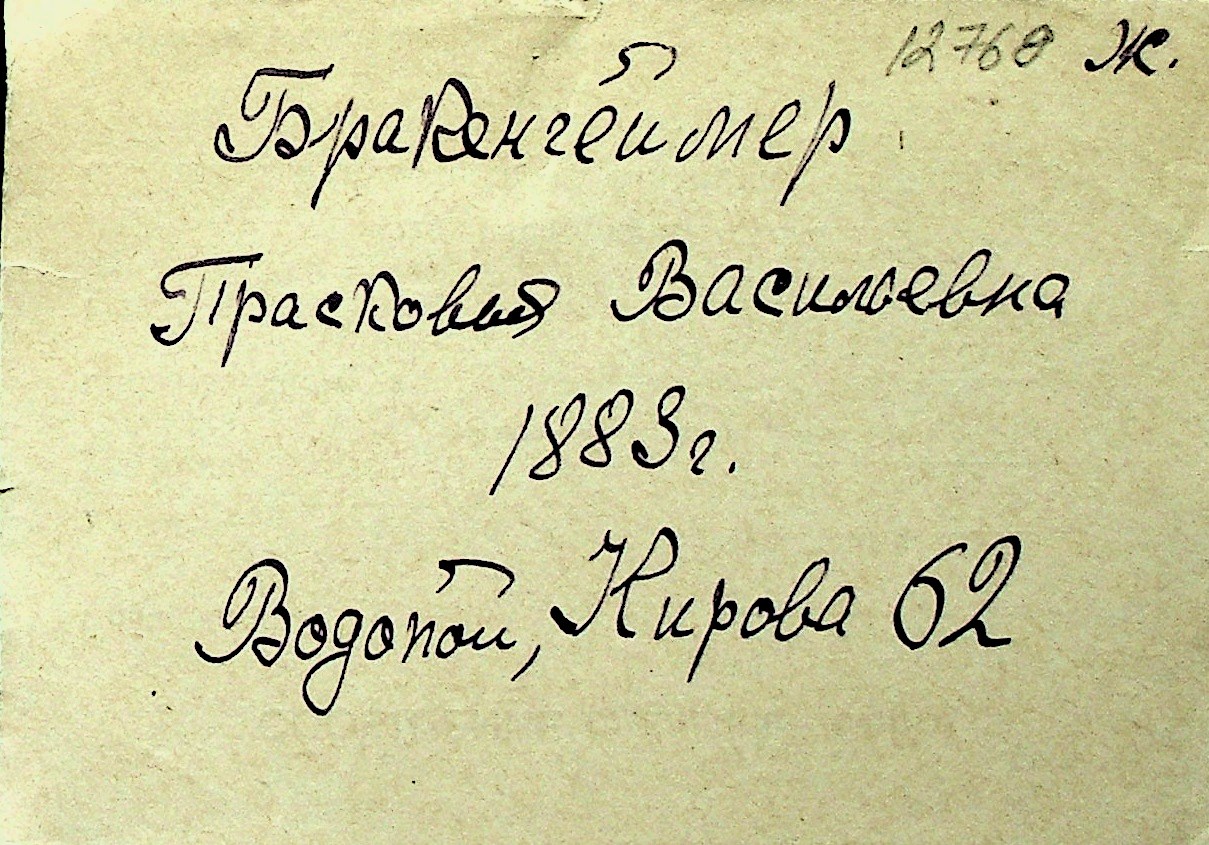 12768 Ж.
Бракенгеймер
Прасковия Васильевна
1883г.
Водопой, Кирова 62